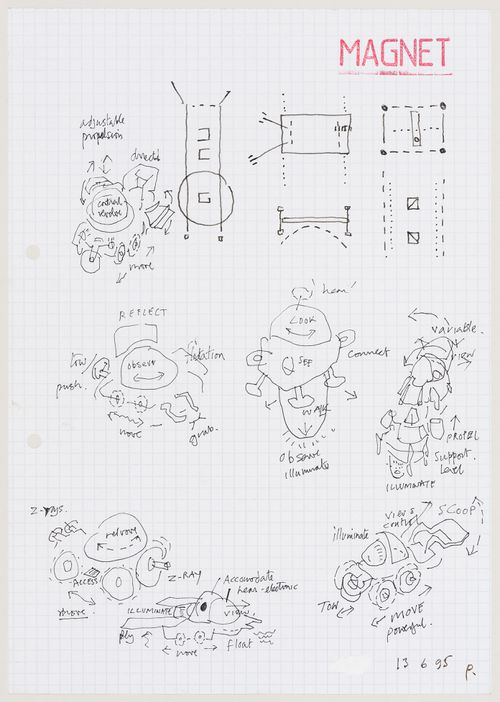 MAGNET
adjustable
propulsion
direct
control
move
REFLECT
observe
flotation
tow
push.
move
grab.
'hear'
LOOK
SEE
connect
WALK
observe
illuminate
variable
view
PROPEL
support
level
ILLUMINATE
Z-rays.
ACCESS
move
Z-RAY
Accomodate
hear-electronic
ILLUMINATE
view
fly
move
float
illuminate
view &
control
SCOOP
TOW
MOVE
powerful.
13 6 95 P.